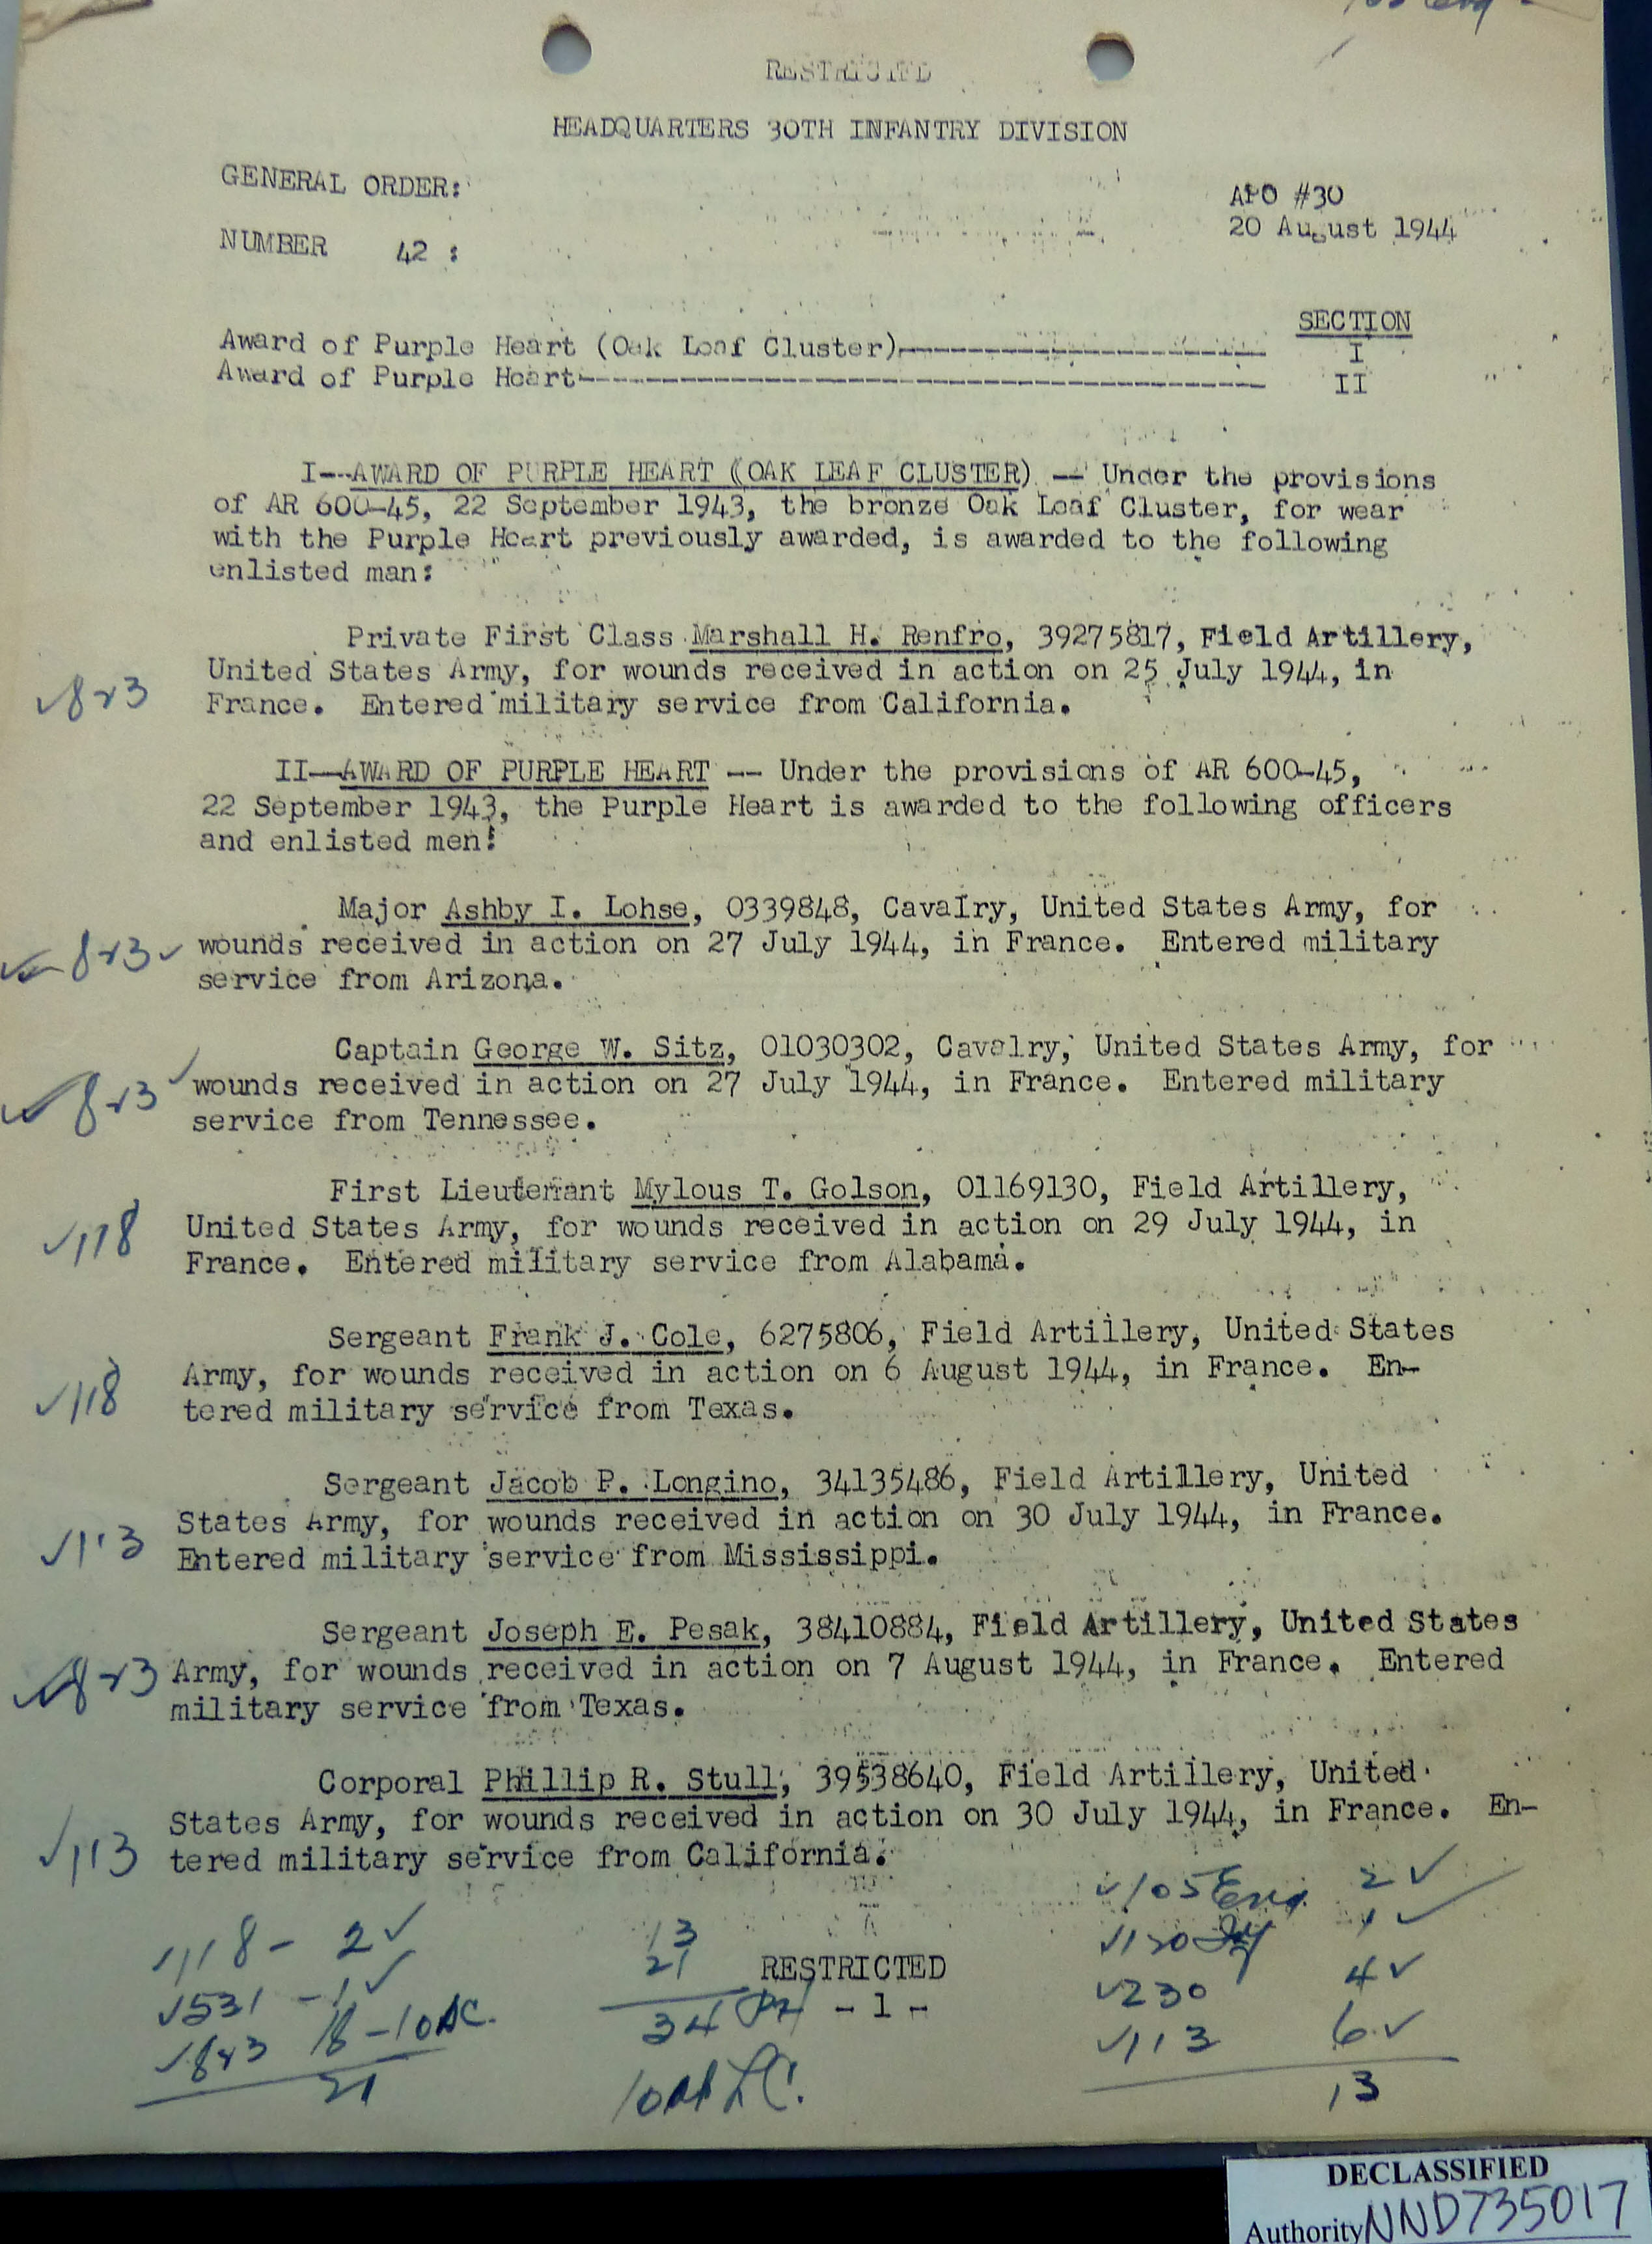 RESTRICTED
HEADQUARTERS 30TH INFANTRY DIVISION
GENERAL ORDER:
APO #30
20 August 1944
NUMBER 42 :
SECTION
Award of Purple Heart (Oak Leaf Cluster)---------------------- I
Award of Purple Heart---------------------------------------- II
I--AWARD OF PURPLE HEART (OAK LEAF CLUSTER) -- Under the provisions
of AR 600-45, 22 September 1943, the bronze Oak Leaf Cluster, for wear
with the Purple Heart previously awarded, is awarded to the following
enlisted man:
Private First Class Marshall H. Renfro, 39275817, Field Artillery,
United States Army, for wounds received in action on 25 July 1944, in
✓823 France. Entered military service from California.
II--AWARD OF PURPLE HEART -- Under the provisions of AR 600-45,
22 September 1943, the Purple Heart is awarded to the following officers
and enlisted men:
Major Ashby I. Lohse, 0339848, Cavalry, United States Army, for
✓ 823 ✓ wounds received in action on 27 July 1944, in France. Entered military
service from Arizona.
Captain George W. Sitz, 01030302, Cavalry, United States Army, for
✓ 823 ✓ wounds received in action on 27 July 1944, in France. Entered military
service from Tennessee.
First Lieutenant Mylous T. Golson, 01169130, Field Artillery,
✓118 United States Army, for wounds received in action on 29 July 1944, in
France. Entered military service from Alabama.
Sergeant Frank J. Cole, 6275806, Field Artillery, United States
Army, for wounds received in action on 6 August 1944, in France. En-
✓118 tered military service from Texas.
Sergeant Jacob P. Longino, 34135486, Field Artillery, United
States Army, for wounds received in action on 30 July 1944, in France.
✓113 Entered military service from Mississippi.
Sergeant Joseph E. Pesak, 38410884, Field Artillery, United States
✓823 Army, for wounds received in action on 7 August 1944, in France. Entered
military service from Texas.
Corporal Phillip R. Stull, 39538640, Field Artillery, United
States Army, for wounds received in action on 30 July 1944, in France. En-
✓113 tered military service from California.
✓118 - 2✓
✓531 - 1✓
✓823 18 - 1 OLC.
21
13
21
34 PH
1 Oak L.C.
RESTRICTED
- 1 -
✓105 Eng. 2 ✓
✓120 Inf 1 ✓
✓230 4 ✓
✓113 6 ✓
13
DECLASSIFIED
Authority NND735017